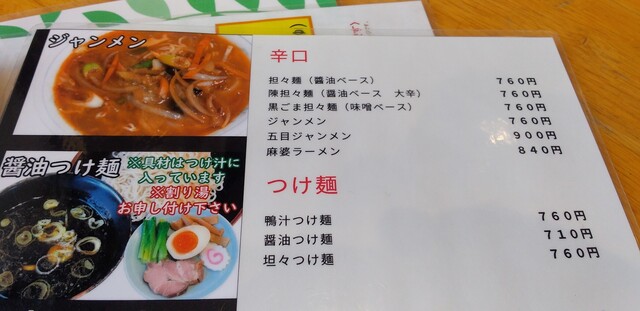 ジャンメン
醤油つけ麺
※具材はつけ汁に
入っています
※割り湯
お申し付け下さい
辛口
担々麺（醤油ベース） 760円
陳担々麺（醤油ベース 大辛） 760円
黒ごま担々麺（味噌ベース） 760円
ジャンメン 760円
五目ジャンメン 900円
麻婆ラーメン 840円
つけ麺
鴨汁つけ麺 760円
醤油つけ麺 710円
坦々つけ麺 760円